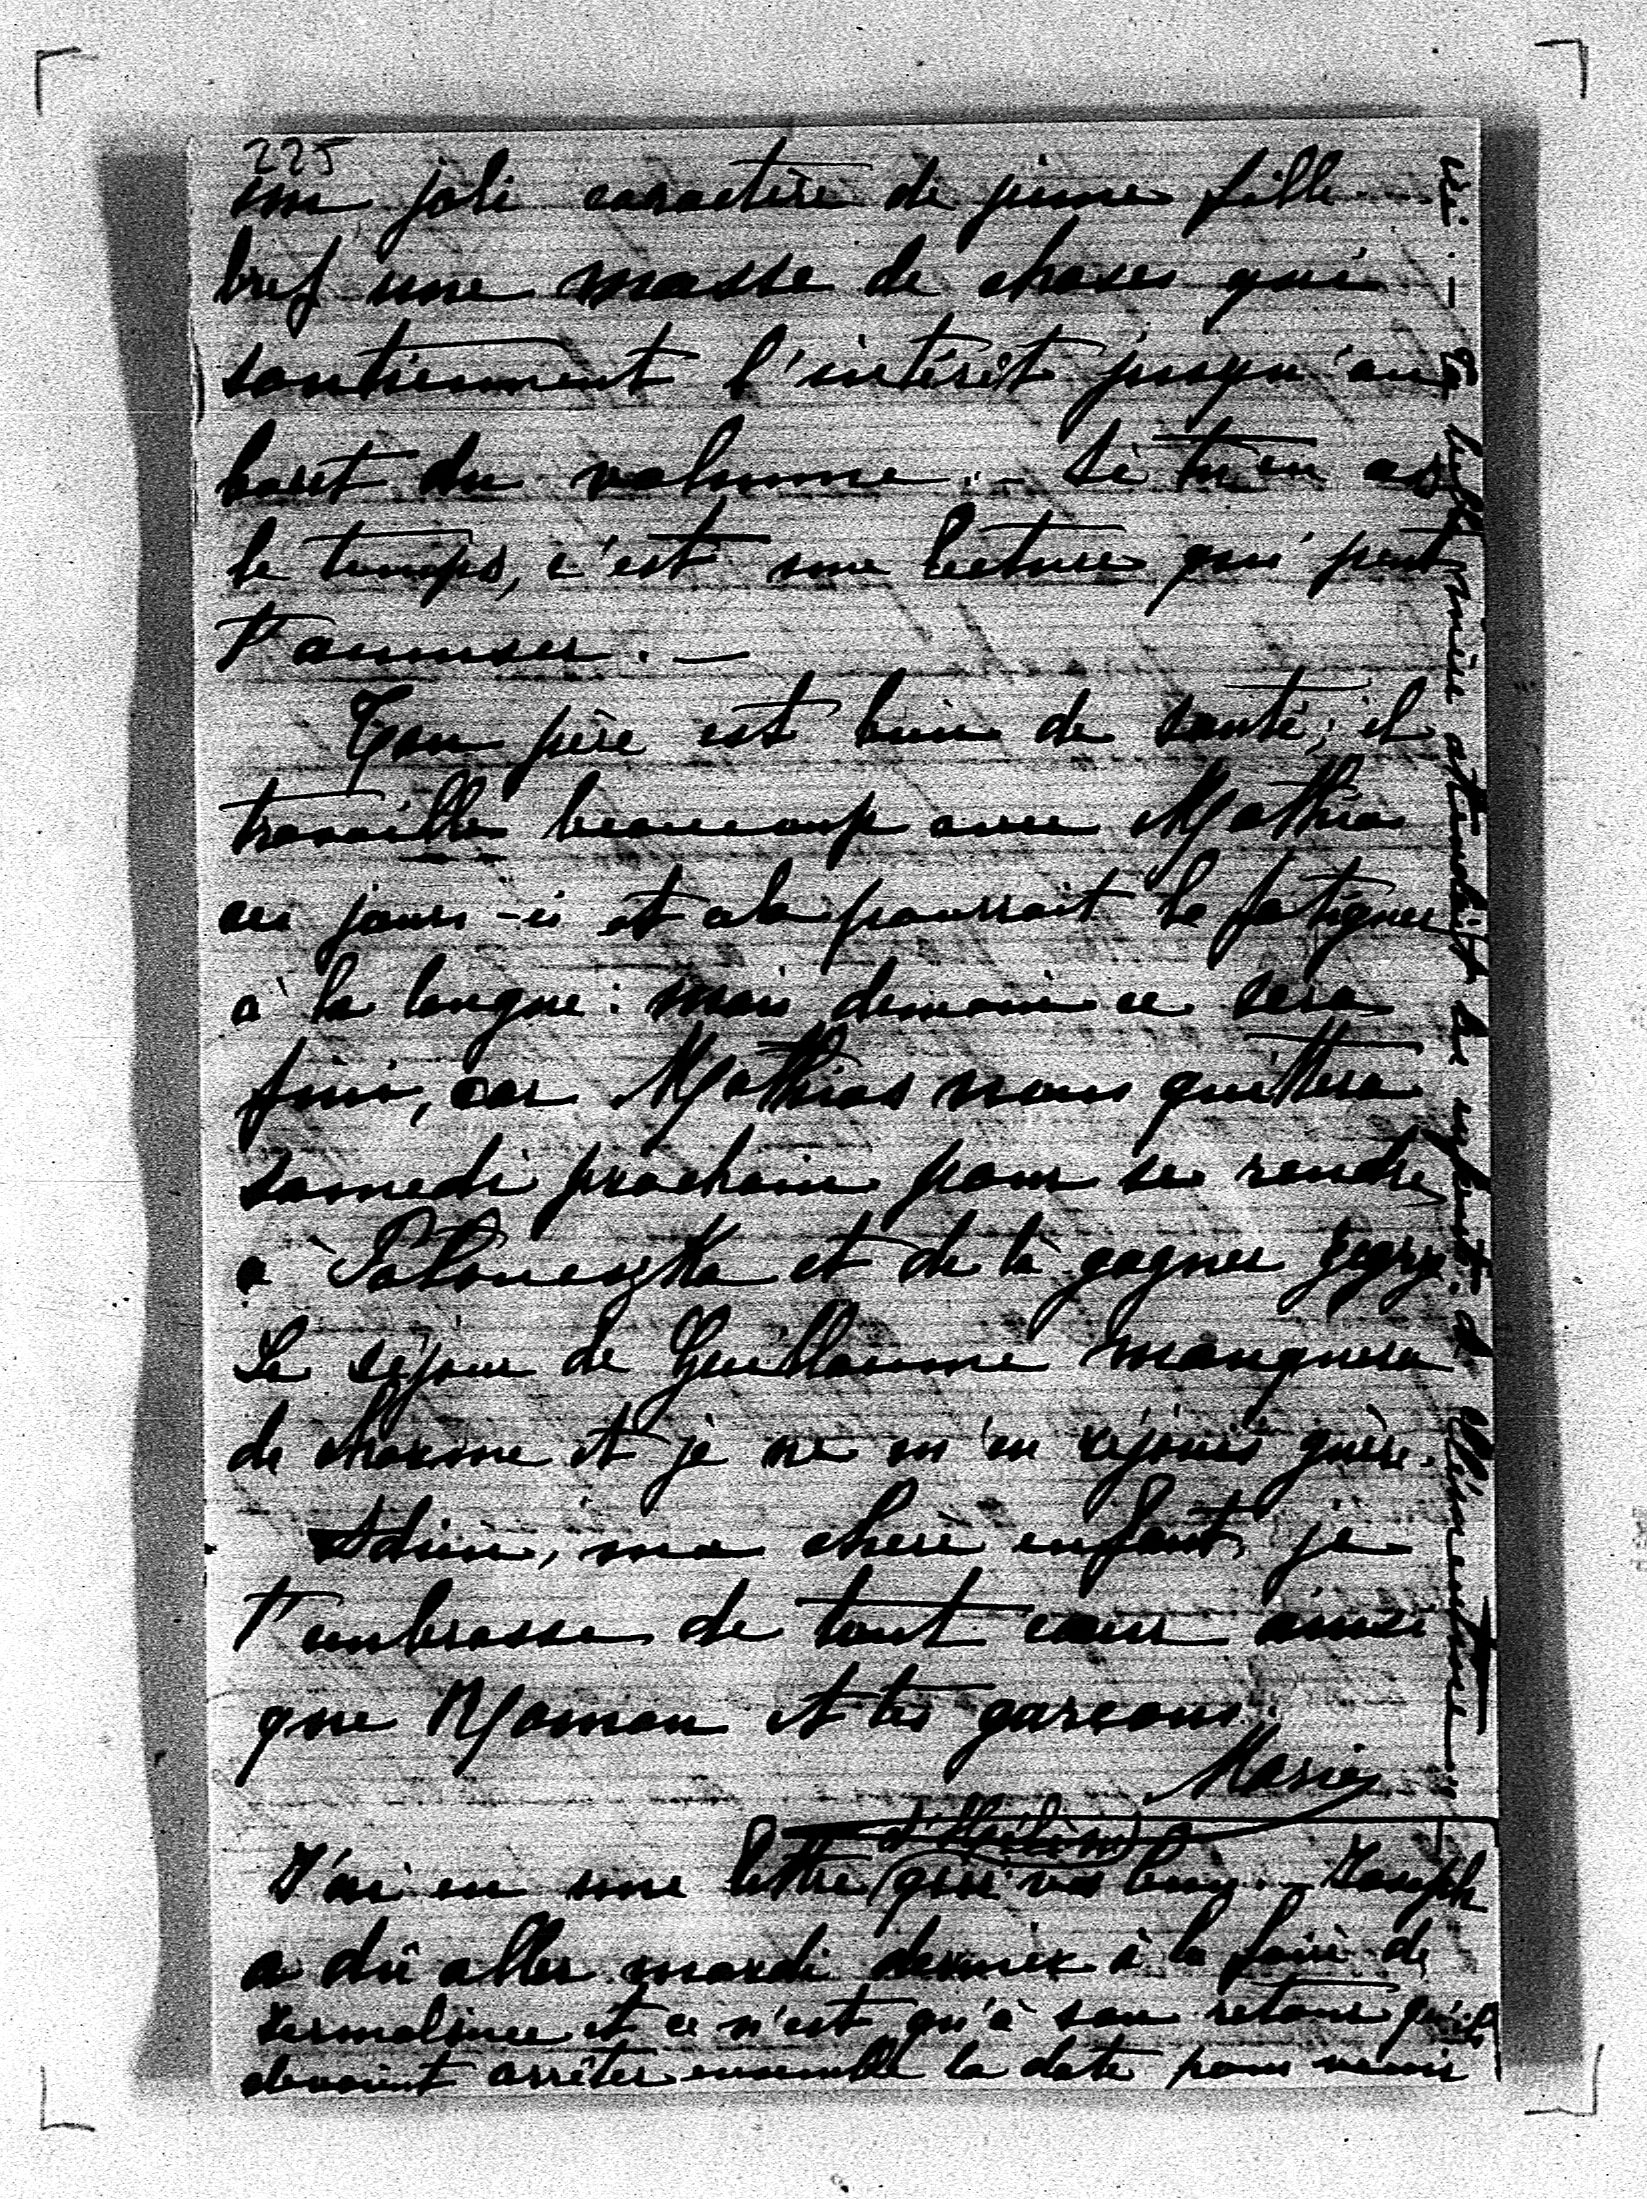 225
un joli caractère de jeune fille
bref une masse de choses qui
soutiennent l'intérêt jusqu'au
bout du volume. – Si tu en as
le temps, c'est une lecture qui peut
t'amuser. –
Ton père est bien de santé; il
travaille beaucoup avec Mathias
ces jours-ci et cela pourrait le fatiguer
à la longue: mais demain ce sera
fini, car Mathias nous quittera
samedi prochain pour se rendre
à et de là gagner
Le séjour de Guillaume manquera
de charme et je ne m'en réjouis guère.
Adieu, ma chère enfant, je
t'embrasse de tout cœur ainsi
que Maman et tes garçons.
Marie
d'Hélène
J'ai eu une lettre qui va bien. – Joseph
a dû aller mardi dernier à la foire de
et ce n'est qu'à son retour qu'ils
devaient arrêter ensemble la date pour venir
ici. – Ta belle mère et